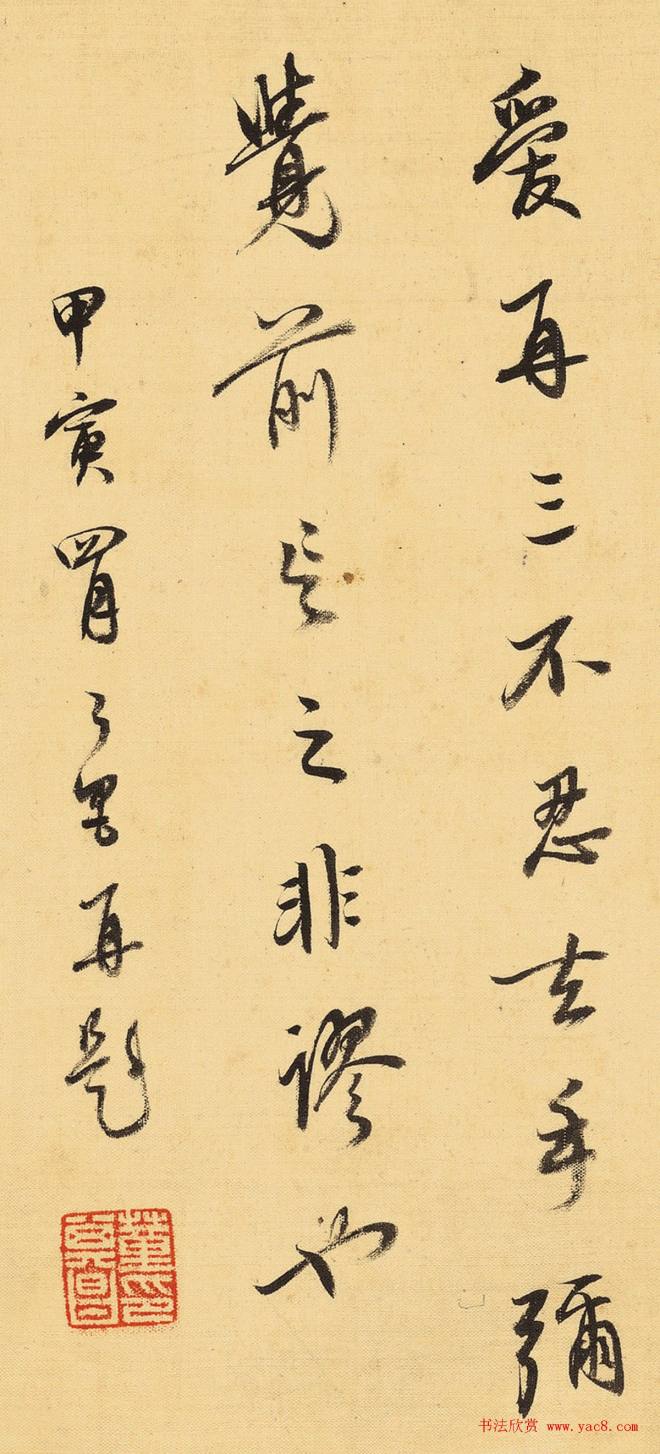 愛再三不忍去手彌
覺前言之非謬也
甲寅四月之男再題
董其昌印
书法欣赏 www.yac8.com